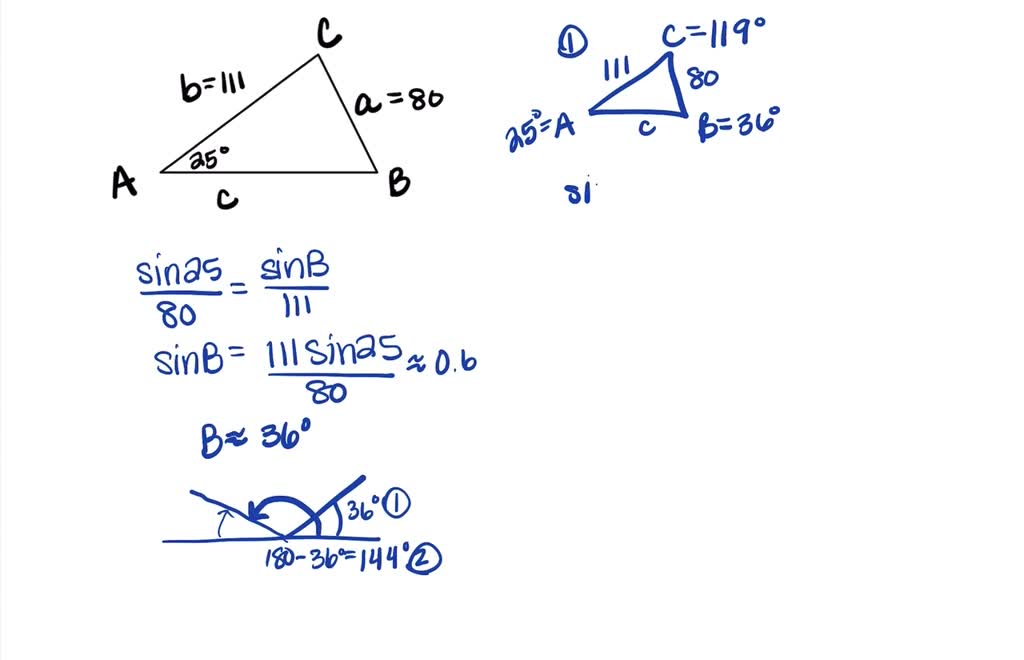 C
b=111
a=80
25°
A
c
B
①
C=119°
111
80
25°=A
c
B=36°
si
sin25/80 = sinB/111
sinB = 111sin25/80 ≈ 0.6
B≈ 36°
36° ①
180-36°=144° ②